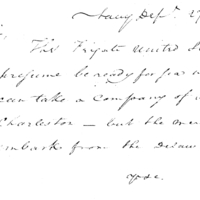 Navy Dept. 27
The Frigate United S
presume be ready for sea
can take a company of
Charleston — but the me
embarks from the Delaw